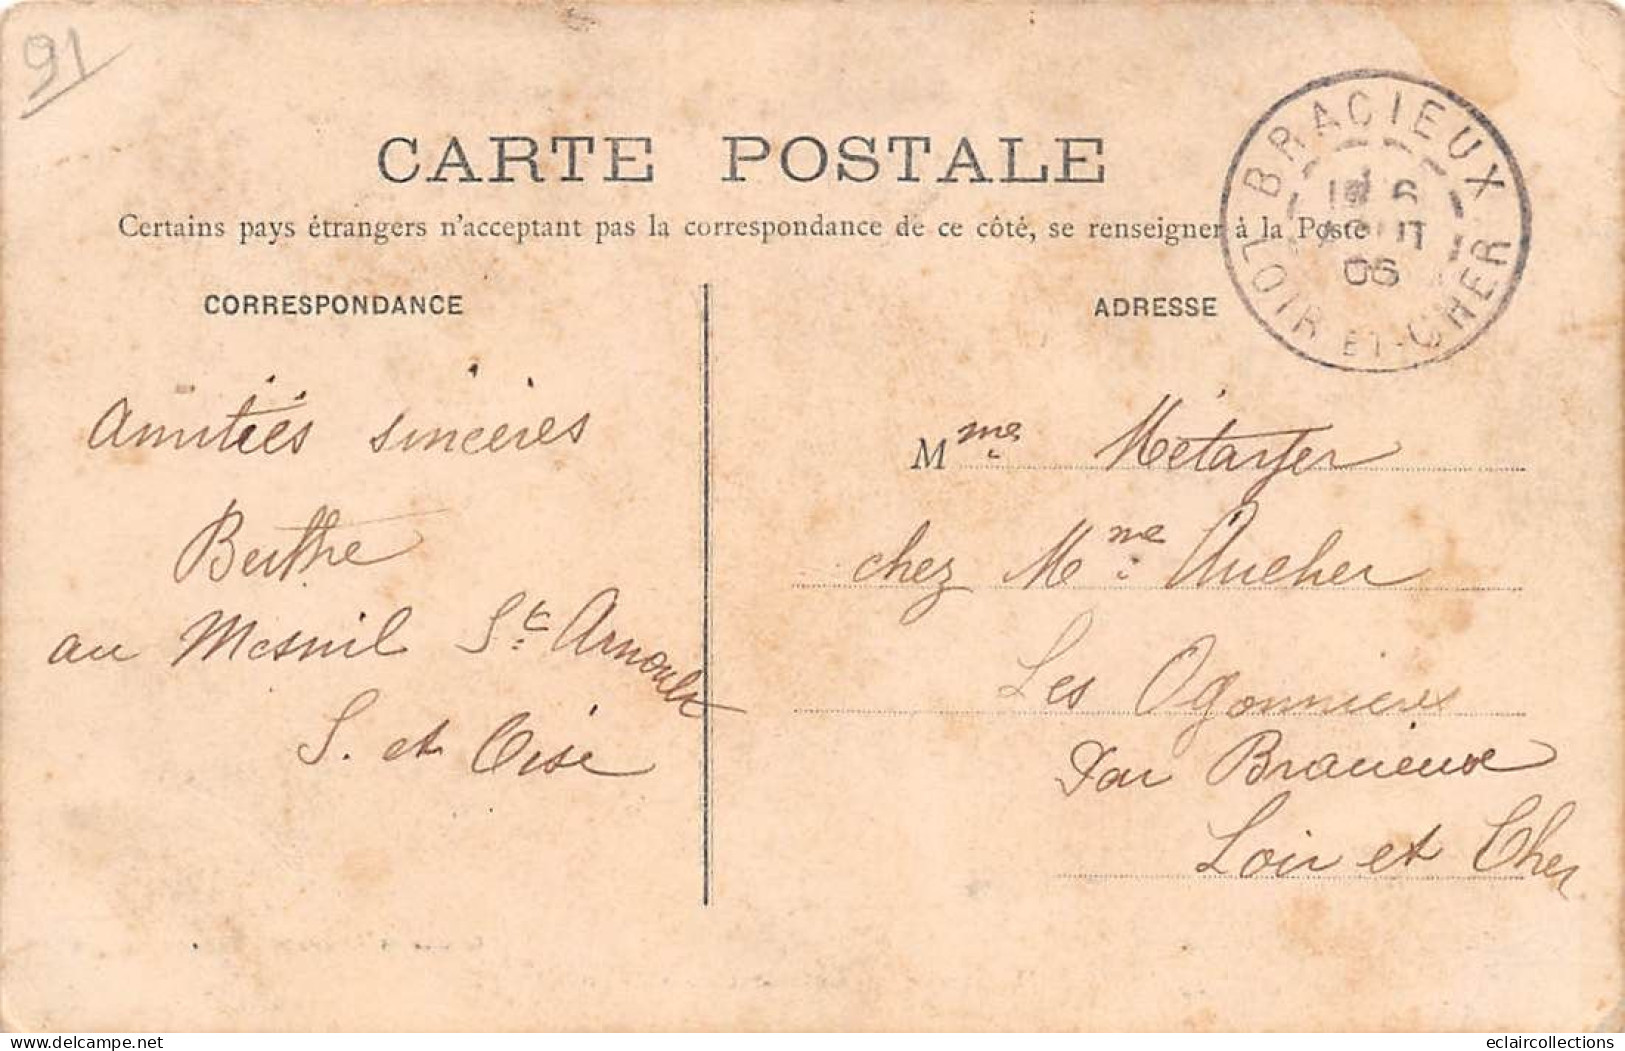 91
CARTE POSTALE
Certains pays étrangers n'acceptant pas la correspondance de ce côté, se renseigner à la Poste
BRACIEUX
6
AOUT
06
LOIR-ET-CHER
CORRESPONDANCE
Amitiés sincères
Berthe
au Mesnil St Arnoult
S. et Oise
ADRESSE
Mme Métayer
chez Mme Aucher
Les Ogonnières
Par Bracieux
Loir et Cher
delcampe.net
eclaircollections